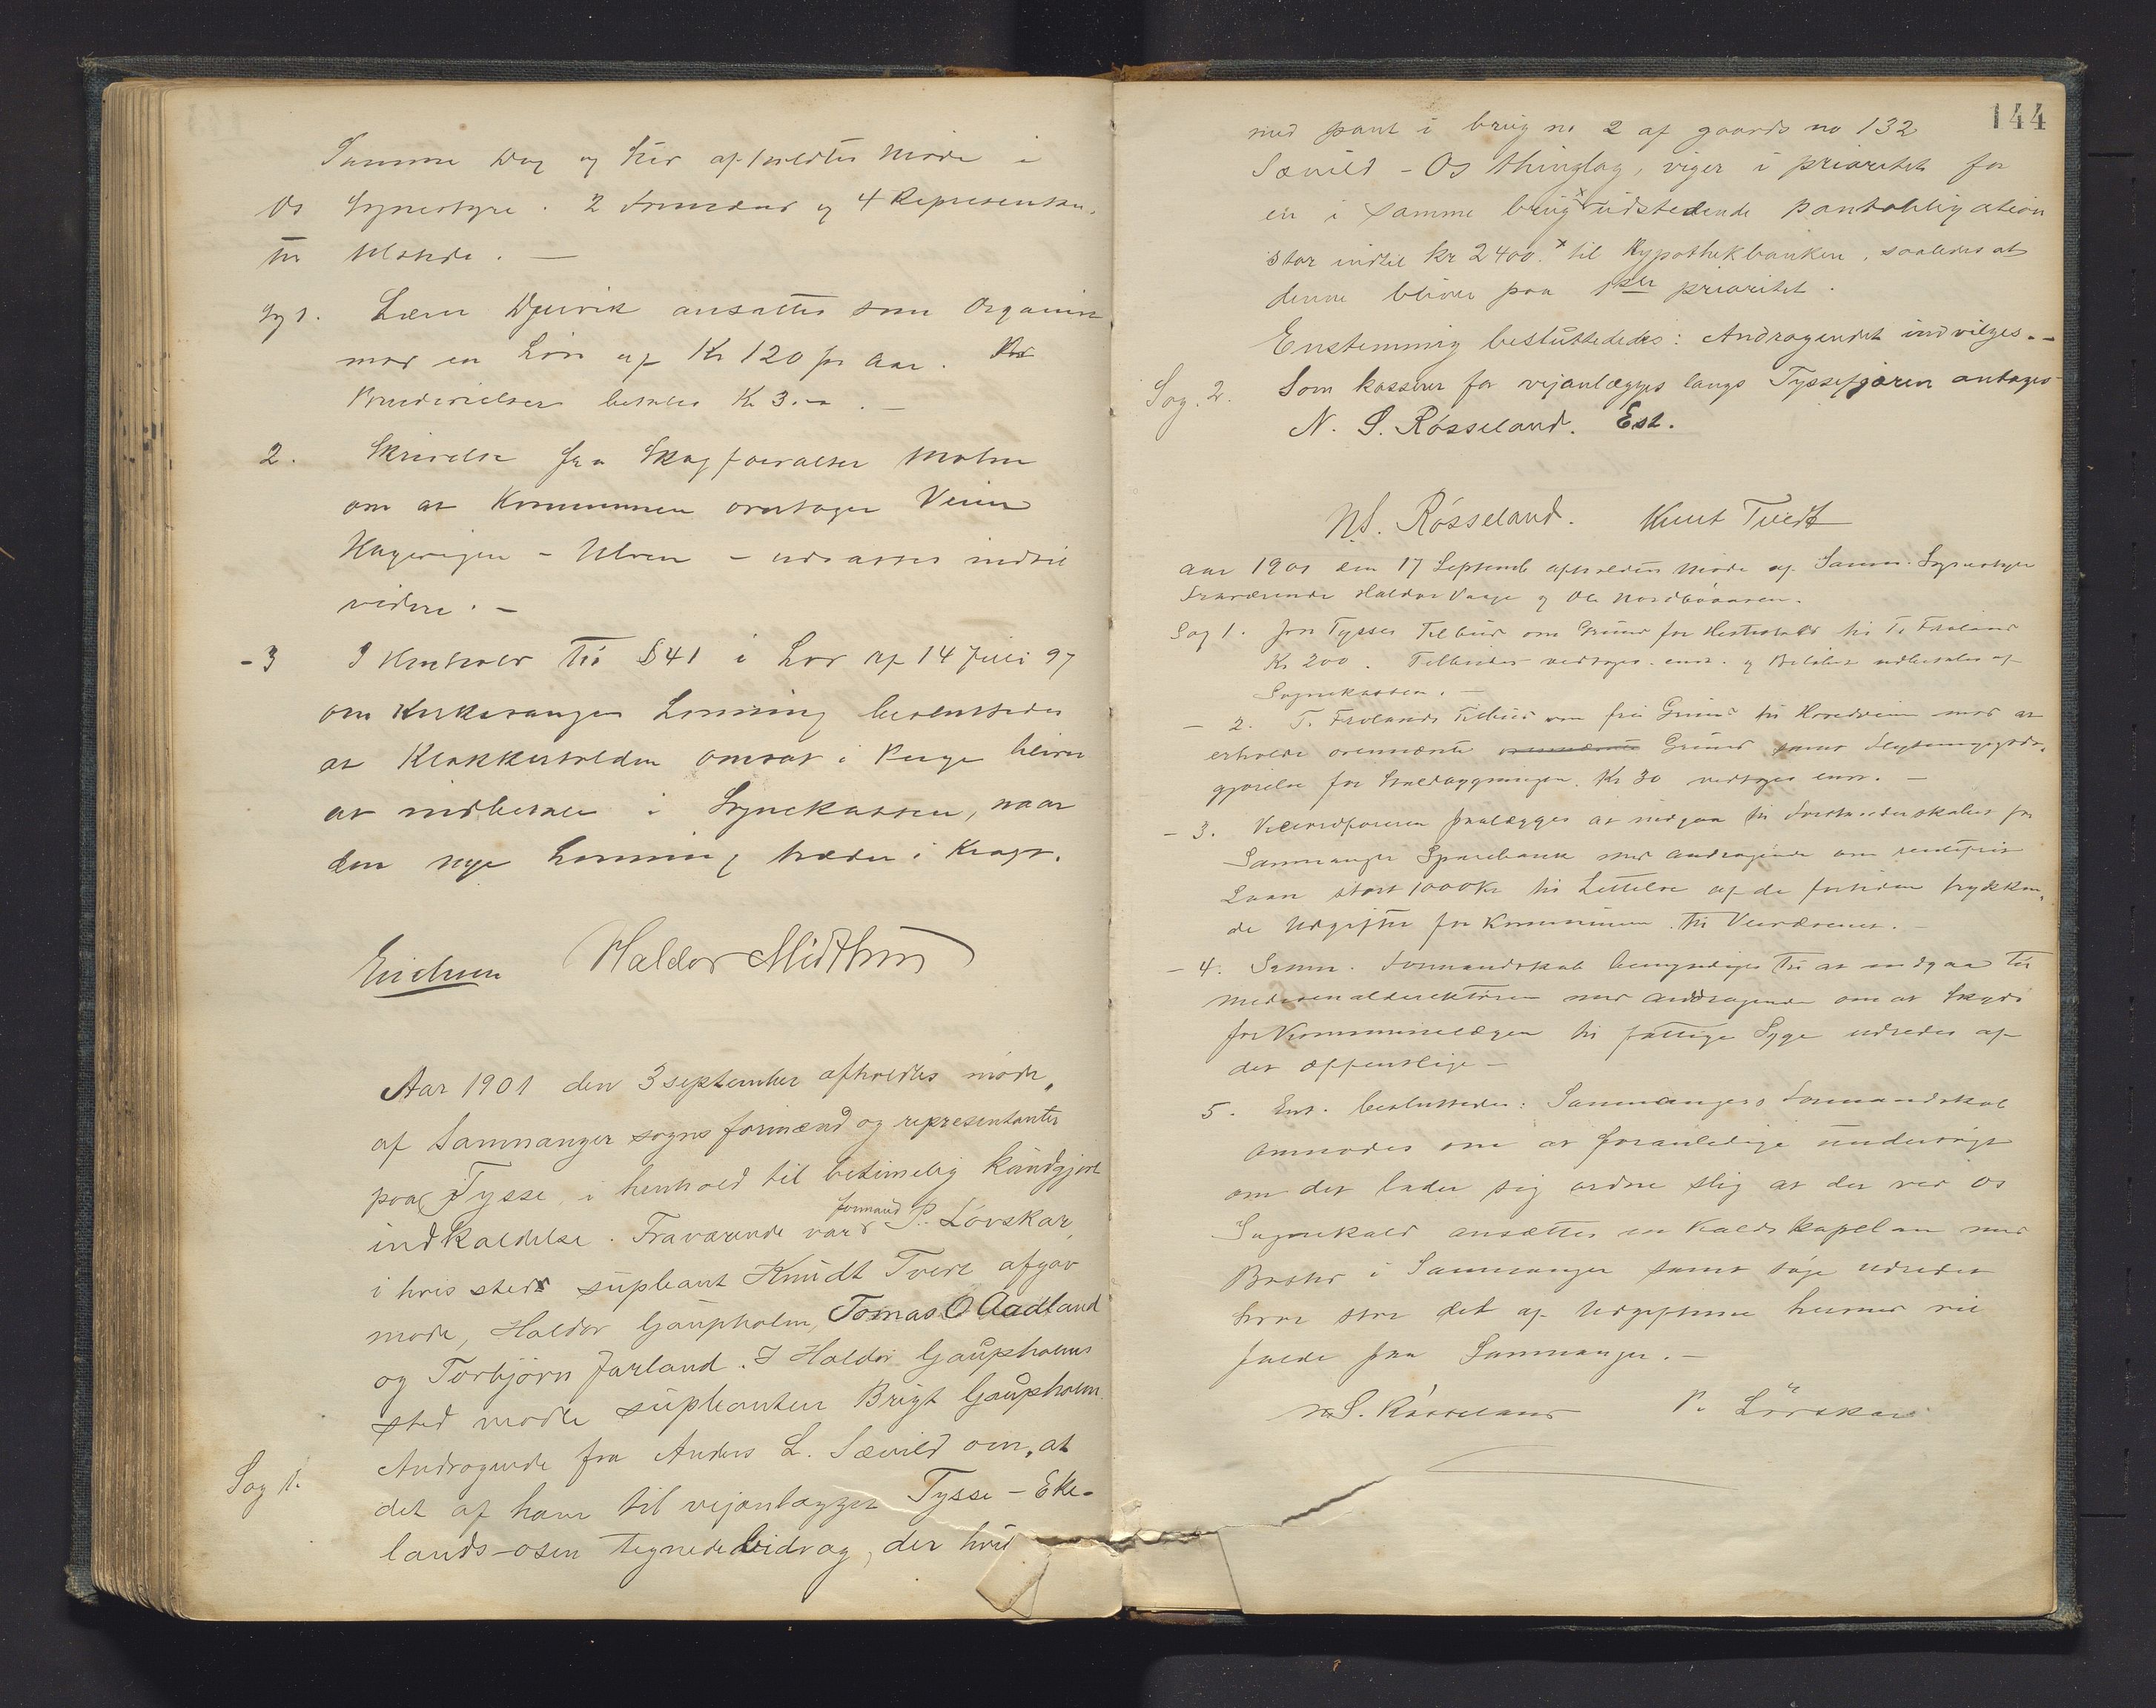 Samme Dag og Aar afholdtes Møde i
Os Sognestyre. 2 Formænd og 4 Repræsentan-
ter mødte. —
Sag 1. Djuvik ansattes som Organist
mod en Løn af Kr 120 pr Aar.
betales Kr 3.—
2. Skrivelse fra Skogforvalter
om at Kommunen overtager Veien
Hagevigen - Ulven - udsattes indtil
videre. —
- 3 I Henhold til § 41 i Lov af 14 Juli 97
om Kirkesangen Lønning besluttedes
at Klokkertolden omsat i Penge bliver
at indbetale i Sognekassen, naar
den nye Lønning træder i Kraft.
Erichsen Haldor Midthun
Aar 1901 den 3 september afholdtes møde,
af Samnanger sogns formænd og representanter
paa Tysse, i henhold til betimelig kundgjort
indkaldelse. Fraværende var formand P. Løvskar,
i hvis sted supleant Knudt Tvedt afgav
møde, Haldor Gaupholm, Tomas O Aadland
og Torbjørn Jarland. I Haldor Gaupholms
sted mødte supleanten Brigt Gaupholm.
Sag 1. Andragende fra Anders L. Sævild om, at
det af ham til vejanlægget Tysse - Eke-
lands-osen tegnede bidrag, der hvil
144
med pant i brug no 2 af gaards no 132
Sævild - Os thinglag, viger i prioritet for
en i samme brug x udstedende pantobligation
stor indtil kr 2400. x til Hypothekbanken, saaledes at
denne bliver paa 1ste prioritet.
Enstemmig besluttededes: Andragendet indvilges. -
Sag. 2. Som kasserer for vejanlægges langs Tyssefjæren antages
N. S. Røsseland. Est.
N.S. Røsseland. Knut Tvedt
Aar 1901 den 17 Septemb afholdtes Møde af Samn. Sognestyre
Fraværende Haldor Vaage og Ole Nordbø
Sag 1. Jon Tysses Tilbud om Grund for til T. Frøland
Kr 200. Tilbudet vedtages enst. og Beløbet udbetales af
Sognekassen. —
— 2. T. Frølands Tilbud om fri Grund til Hovedveien mod at
erholde ovennævnte Grund samt Flytningsgodt-
gjørelse for Kr 30 vedtages enst. —
— 3. Veiordføreren paalægges at indgaa til Forstanderskabet for
Samnanger Sparebank med Andragende om rentefrit
Laan stort 1000 Kr til Lettelse af de fortiden trykken-
de Udgifter for Kommunen til Veivæsenet. —
— 4. Samn. Formandskab bemyndiges til at indgaa til
Medicinaldirektøren med Andragende om at Skyds
for Kommunelægen til fattige Syge udredes af
det offentlige —
5. Enst. besluttedes: Samnangers Formandskab
anmodes om at foranledige undersøgt
om det lader sig ordne slig at der ved Os
Sognekald ansættes en Kaldskapellan med
Bosted i Samnanger samt søge udredet
hvor stor del af Udgifterne herved vil
falde paa Samnanger. —
N.S. Røsseland P. Lövskar